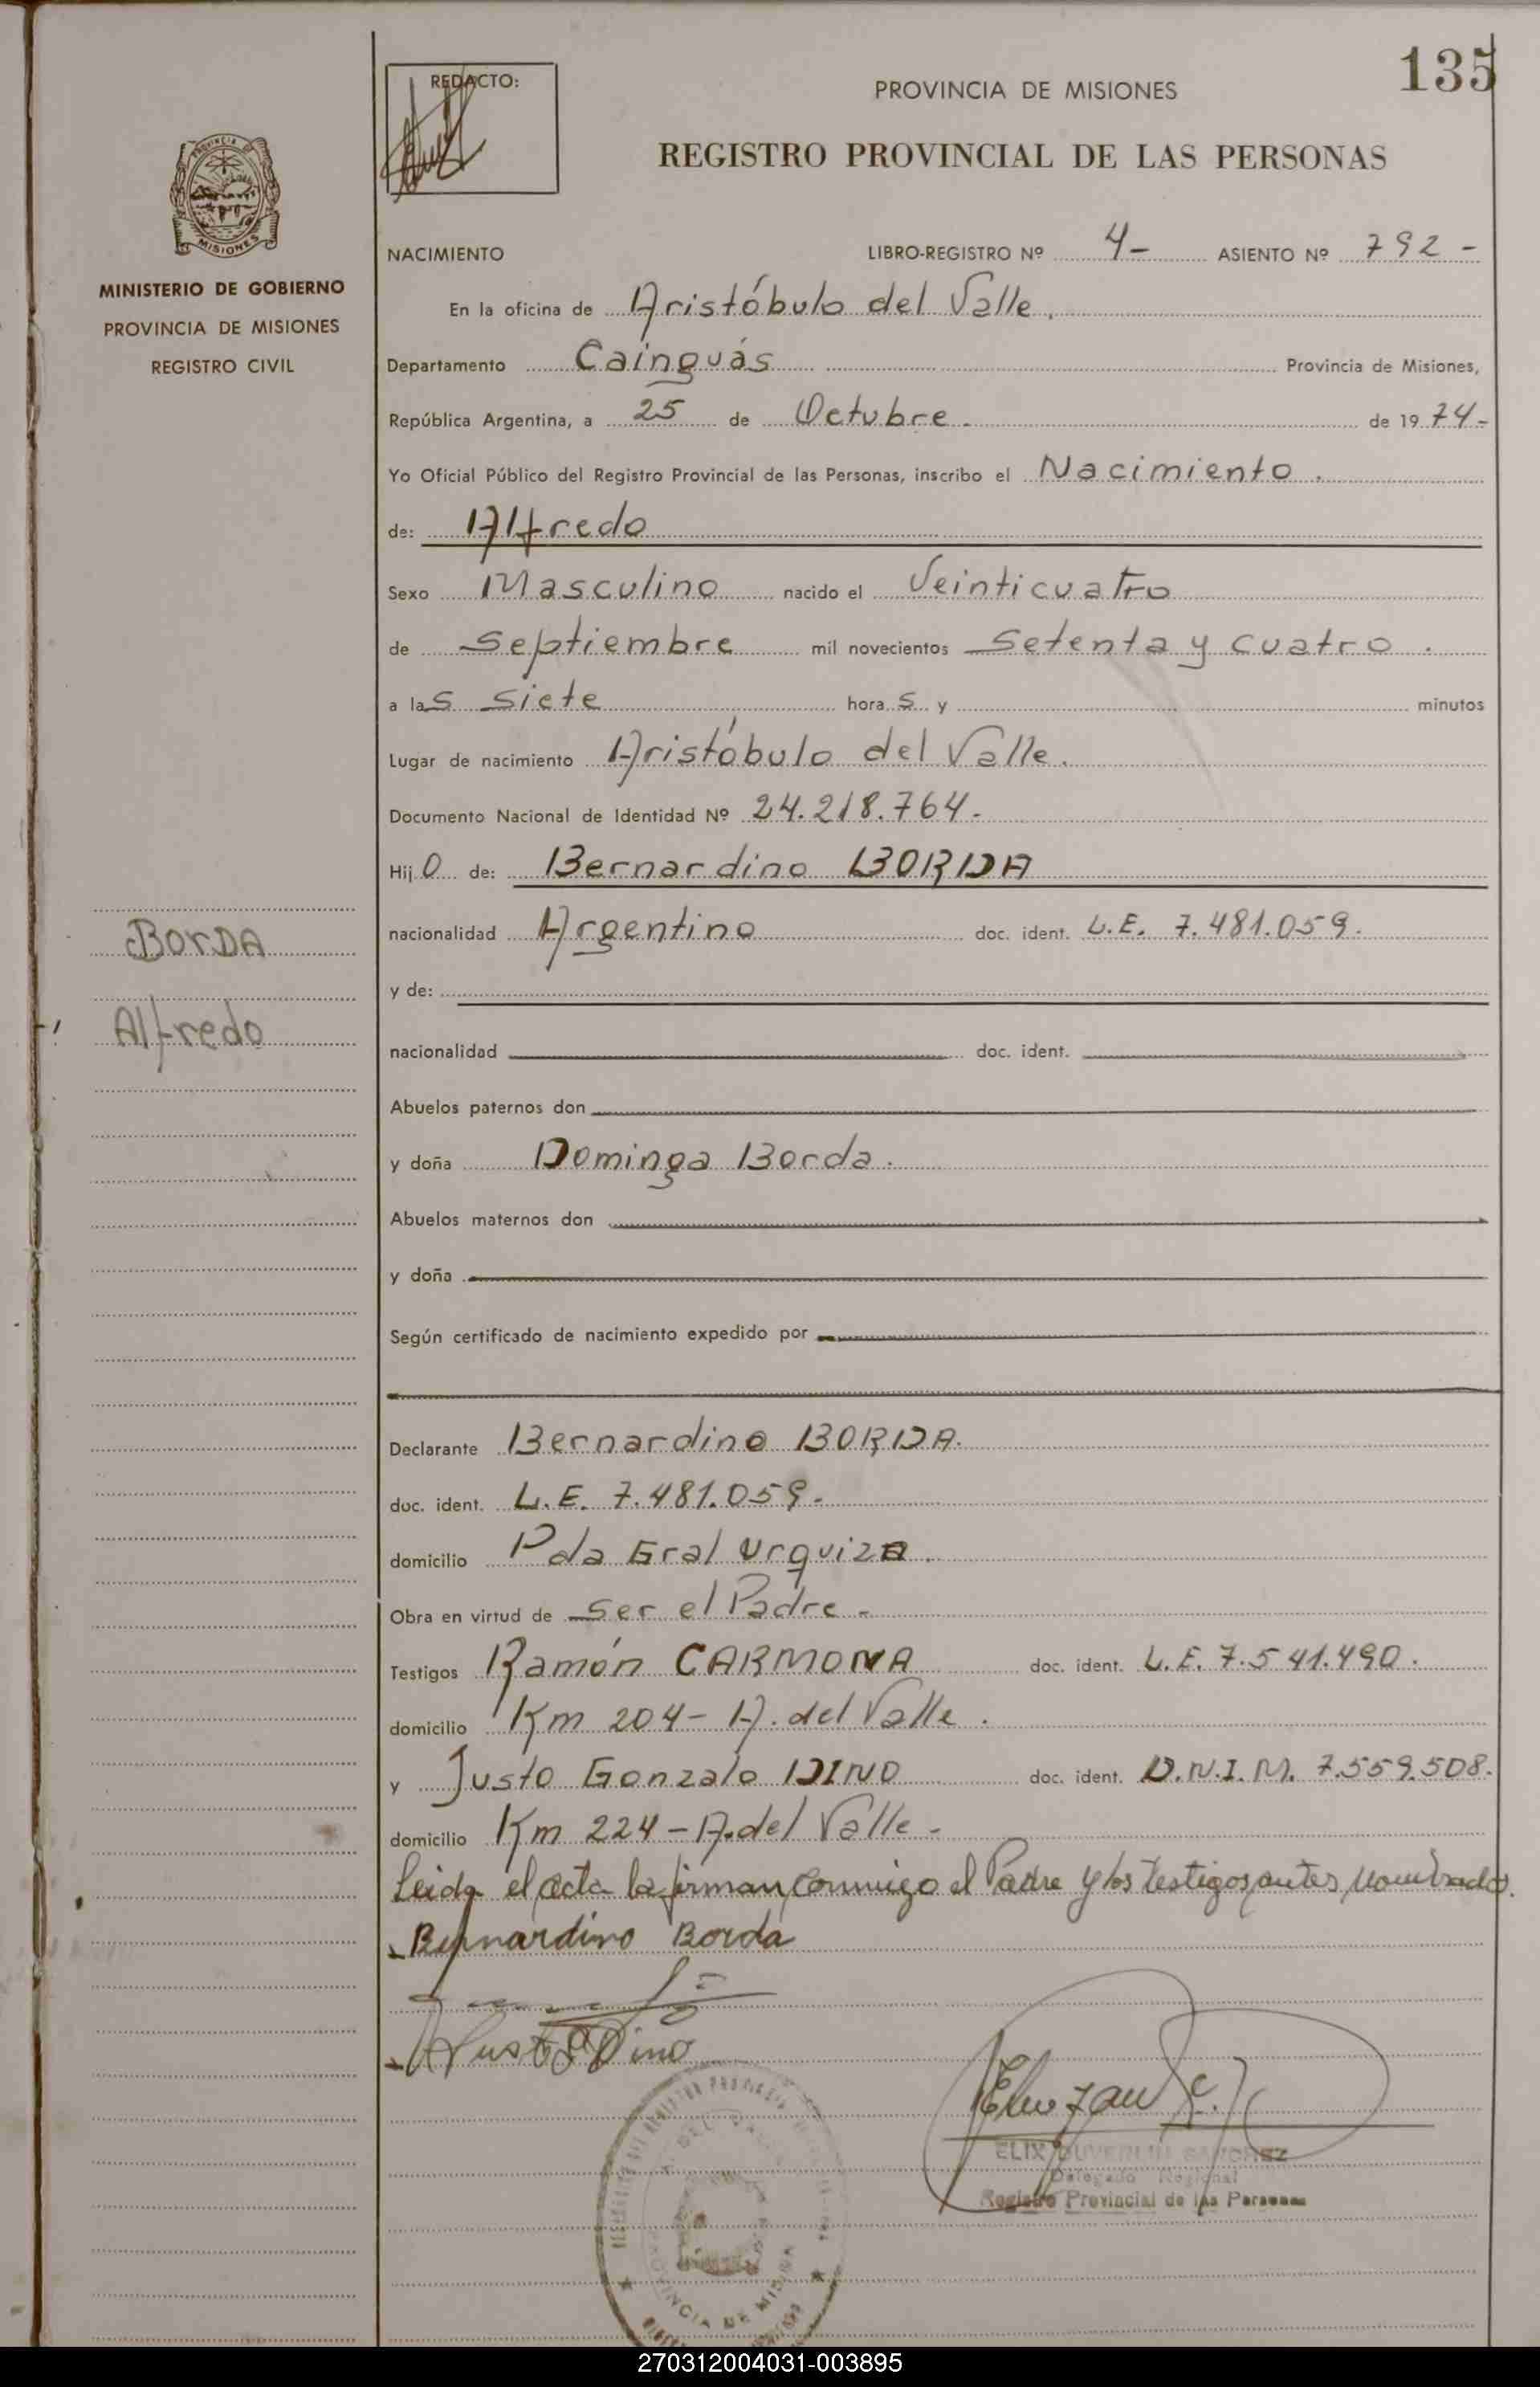 135
REDACTO:
PROVINCIA DE MISIONES
REGISTRO PROVINCIAL DE LAS PERSONAS
MISIONES
MINISTERIO DE GOBIERNO
PROVINCIA DE MISIONES
REGISTRO CIVIL
NACIMIENTO LIBRO-REGISTRO Nº 4- ASIENTO Nº 792-
En la oficina de Aristóbulo del Valle.
Departamento Cainguás Provincia de Misiones,
República Argentina, a 25 de Octubre. de 1974-
Yo Oficial Público del Registro Provincial de las Personas, inscribo el Nacimiento.
de: Alfredo
Sexo Masculino nacido el Veinticuatro
de Septiembre mil novecientos Setenta y cuatro.
a las Siete horas y minutos
Lugar de nacimiento Aristóbulo del Valle.
Documento Nacional de Identidad Nº 24.218.764.-
Hijo de: Bernardino BORDA
nacionalidad Argentino doc. ident. L.E. 7.481.059.
y de:
nacionalidad doc. ident.
Abuelos paternos don
y doña Dominga Borda.
Abuelos maternos don
y doña
Según certificado de nacimiento expedido por
BORDA
Alfredo
Declarante Bernardino BORDA.
doc. ident. L.E. 7.481.059.-
domicilio Pda Gral Urquiza.
Obra en virtud de Ser el Padre.-
Testigos Ramón CARMONA doc. ident. L.E. 7.541.490.
domicilio Km 204- A. del Valle.
y Justo Gonzalo DINO doc. ident. D.N.I.M. 7.559.508.
domicilio Km 224-A.del Valle.-
Leida el acta la firman conmigo el Padre y los testigos antes nombrados.
Bernardino Borda
Justo G Dino
ELIX SANCHEZ
Delegado Regional
Registro Provincial de las Personas
270312004031-003895